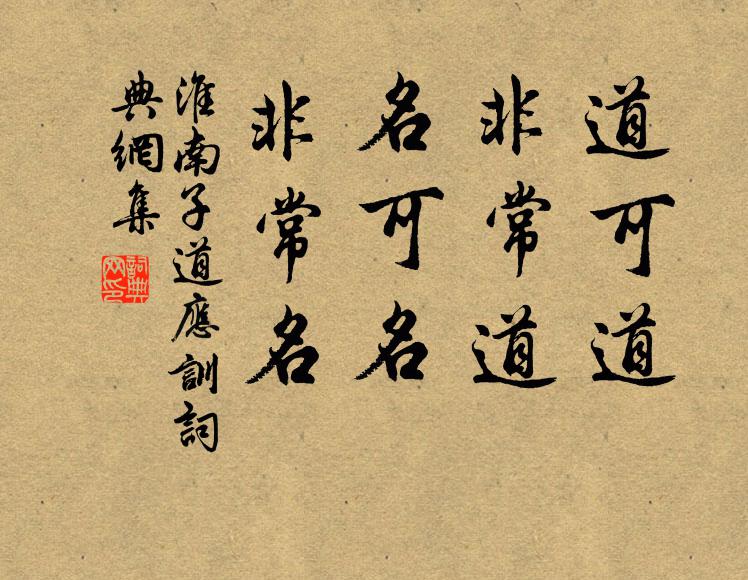 道可道
非常道
名可名
非常名
淮南子道應訓詞
典網集
詞典
网印